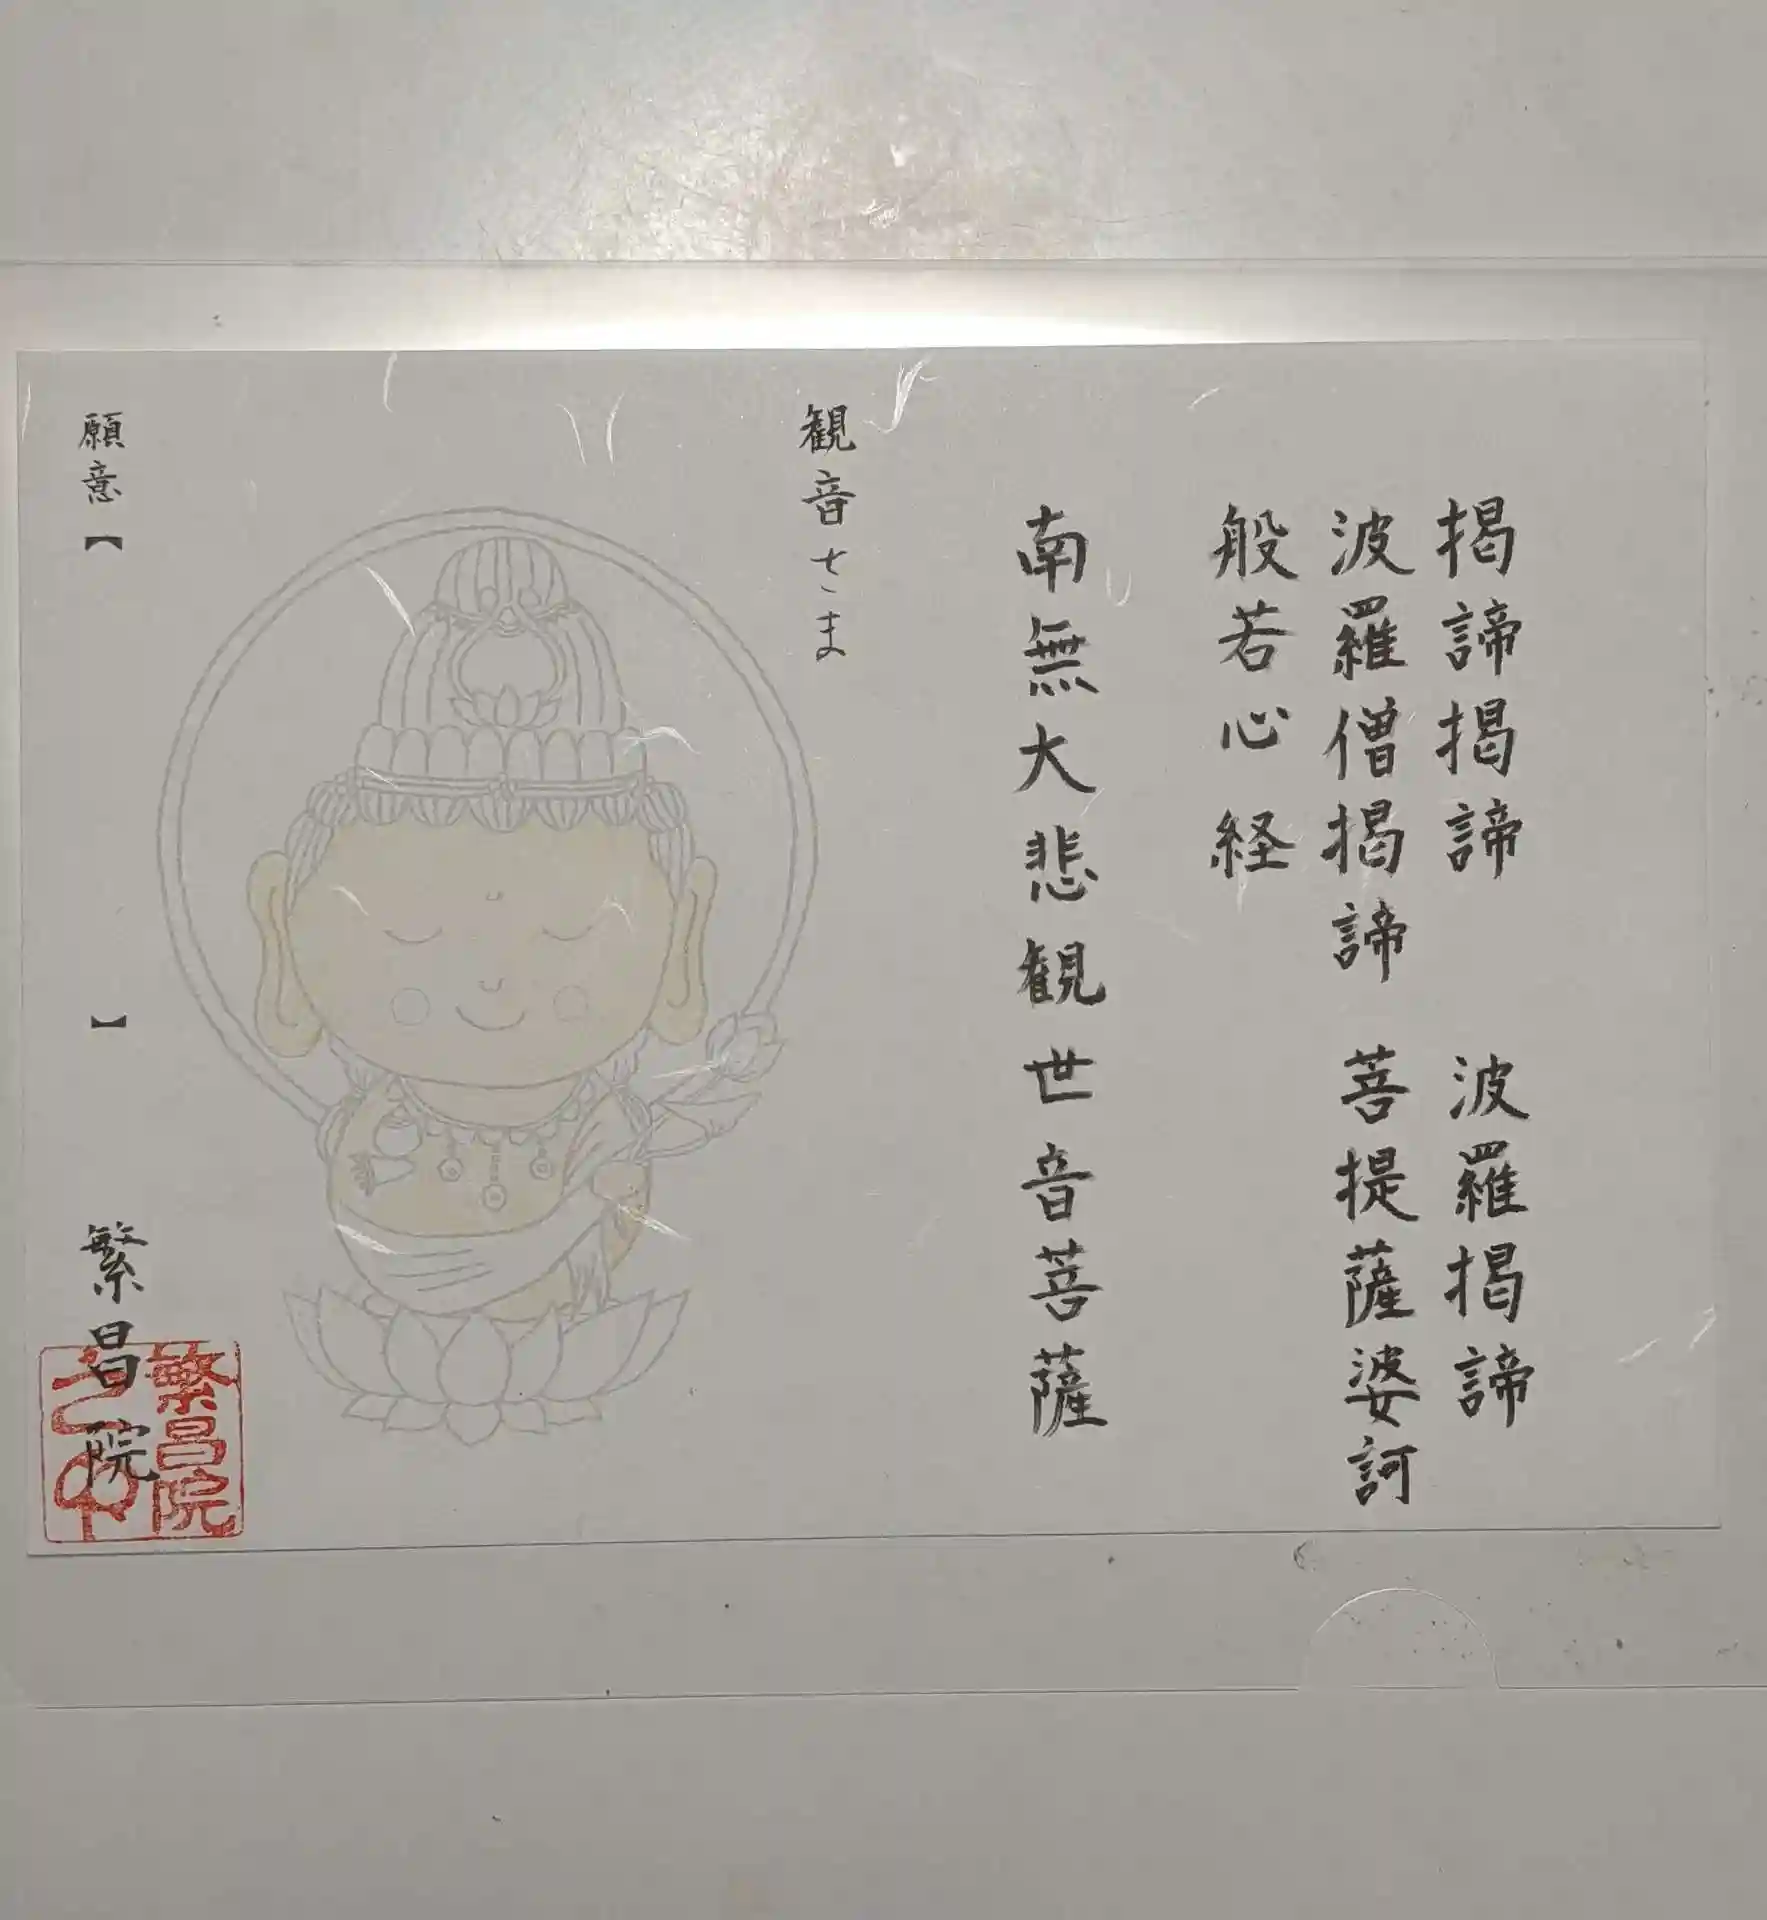 掲諦掲諦 波羅掲諦
波羅僧掲諦 菩提薩婆訶
般若心経
南無大悲観世音菩薩
観音さま
願意【 】
繁昌院
繁昌院